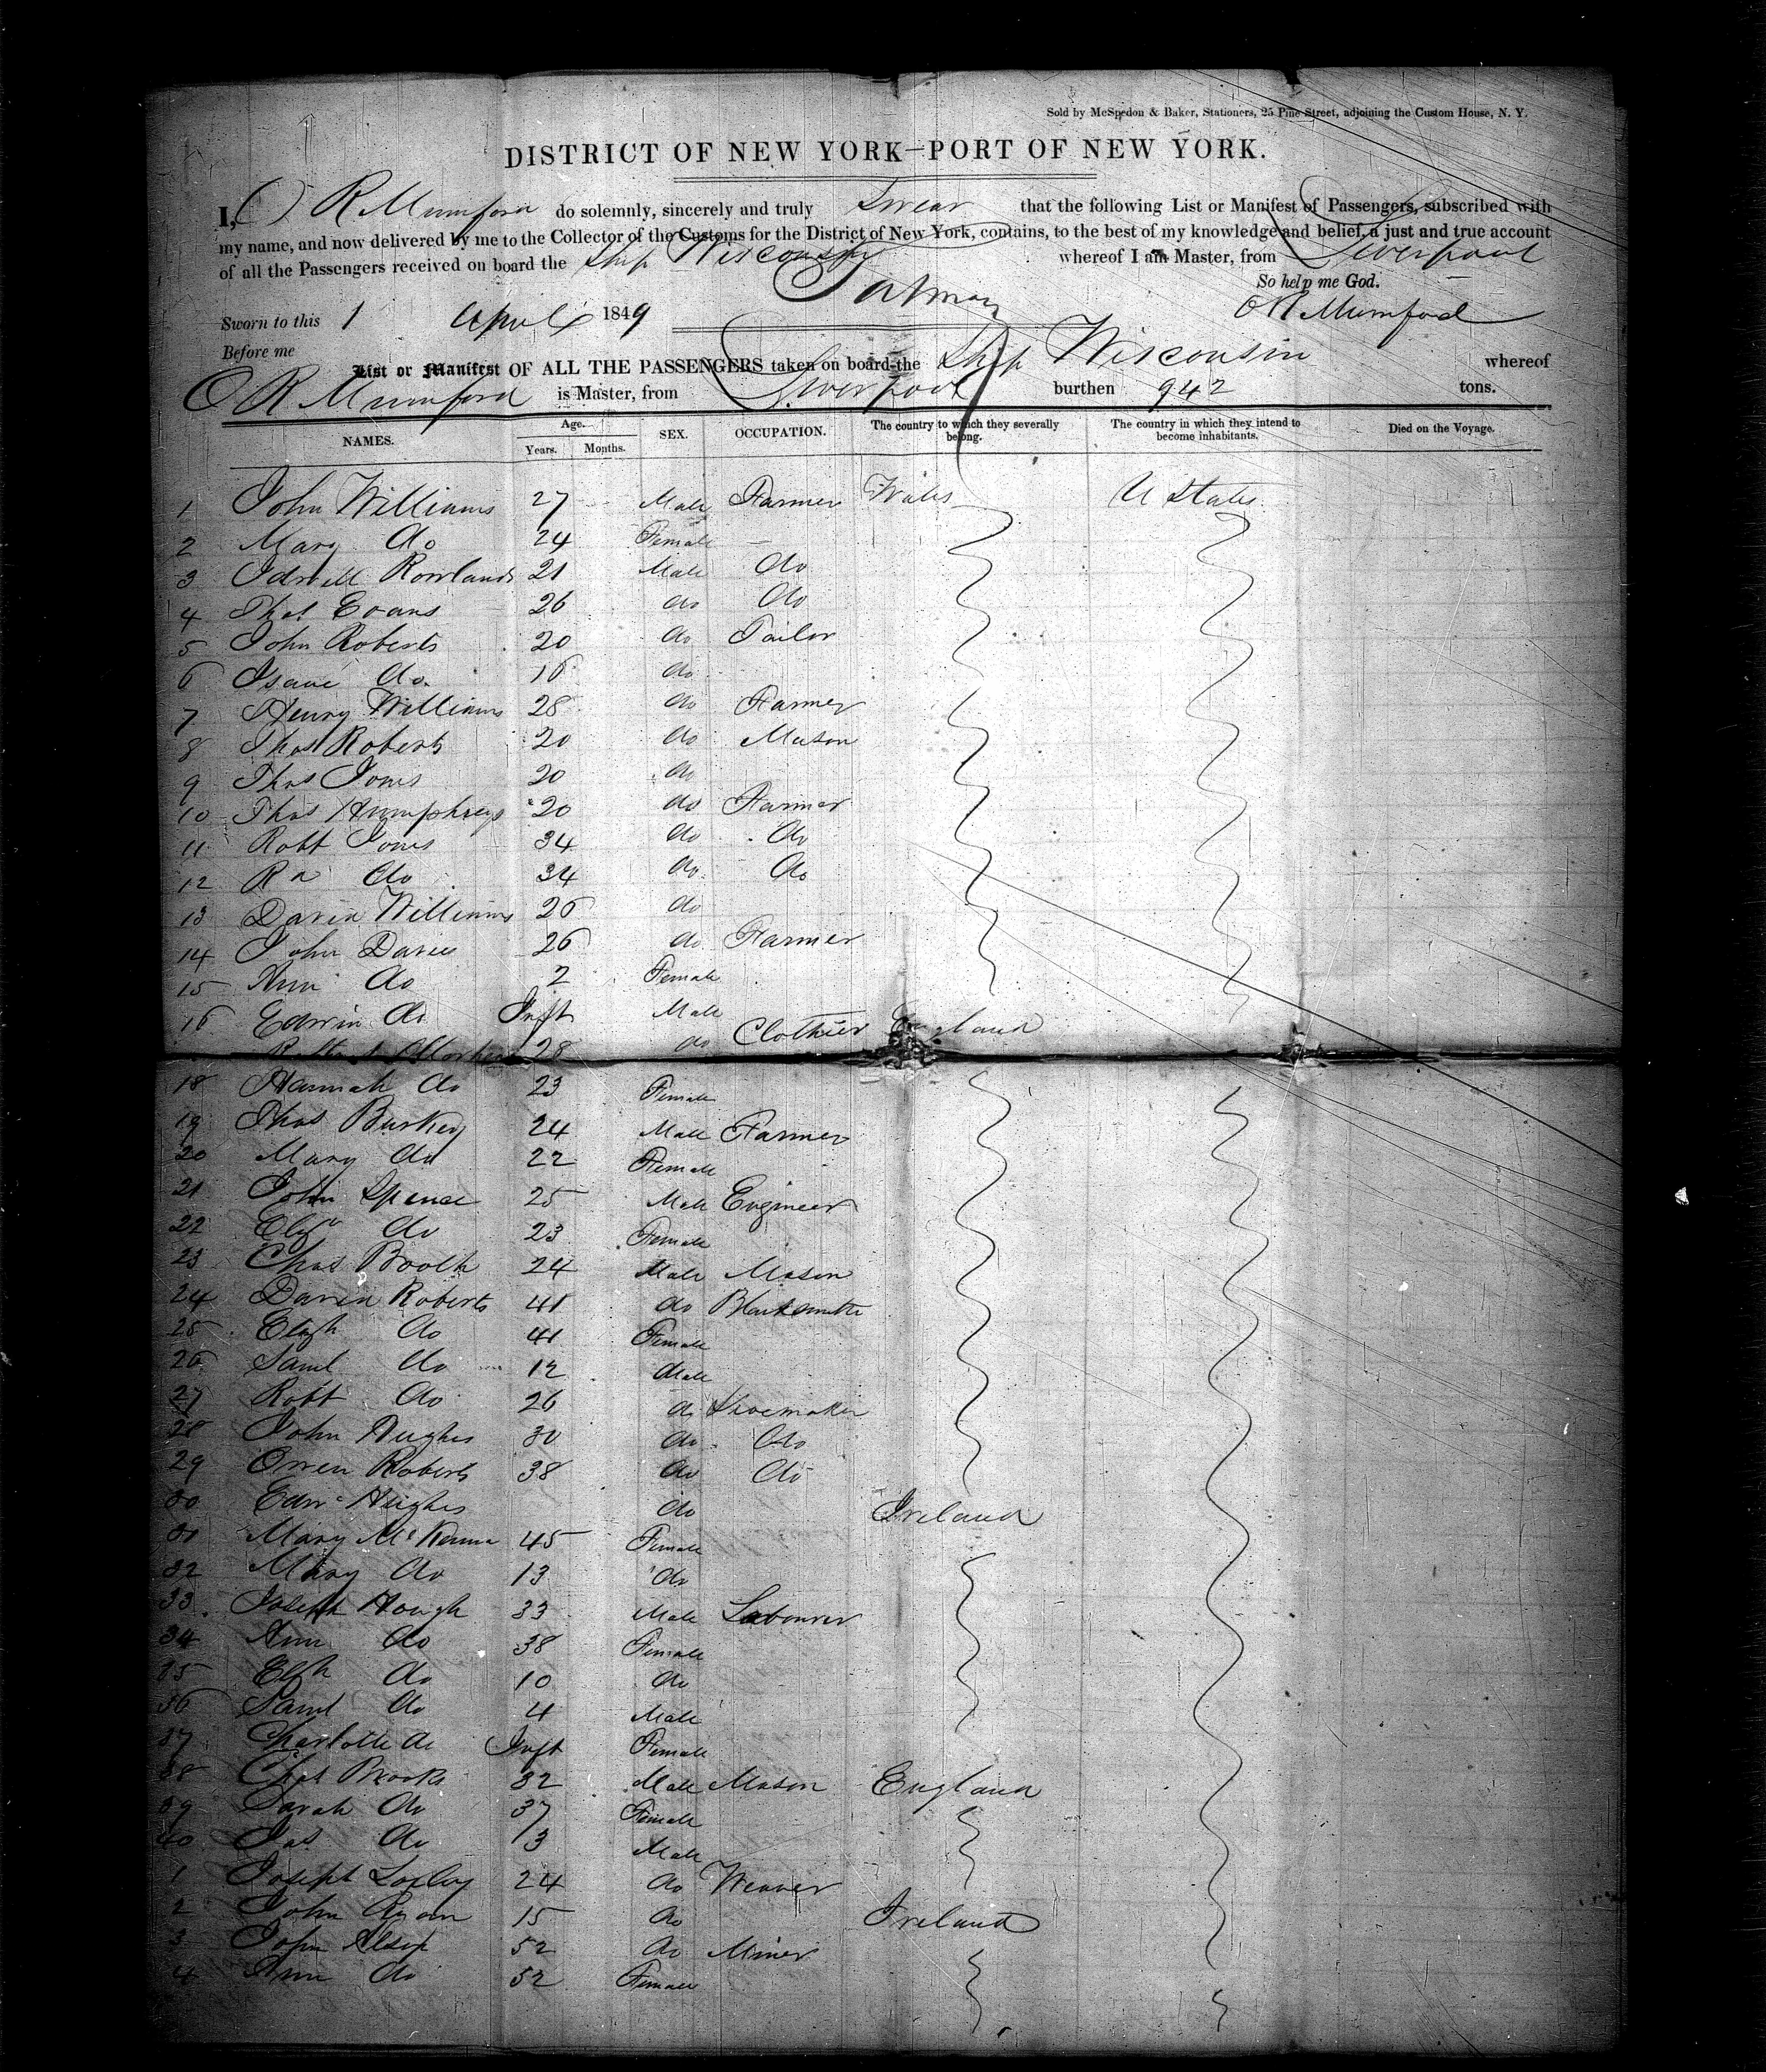 Sold by McSpedon & Baker, Stationers, 25 Pine Street, adjoining the Custom House, N. Y.
DISTRICT OF NEW YORK—PORT OF NEW YORK.
I, O R Mumford do solemnly, sincerely and truly Swear that the following List or Manifest of Passengers, subscribed with
my name, and now delivered by me to the Collector of the Customs for the District of New York, contains, to the best of my knowledge and belief, a just and true account
of all the Passengers received on board the Ship Wisconsin whereof I am Master, from Liverpool
So help me God.
Sworn to this 1 April 1849 O R Mumford
Before me
List or Manifest OF ALL THE PASSENGERS taken on board the Ship Wisconsin whereof
O R Mumford is Master, from Liverpool burthen 942 tons.
NAMES. Age. Years. Months. SEX. OCCUPATION. The country to which they severally belong. The country in which they intend to become inhabitants. Died on the Voyage.
1 John Williams 27 Male Farmer Wales U States
2 Mary do 24 Female —
3 Rowlands 21 Male do
4 Thos Evans 26 do do
5 John Roberts 20 do Tailor
6 Isaac do. 16 do
7 Henry Williams 28 do Farmer
8 Thos Roberts 20 do Mason
9 Thos Jones 20 do
10 Thos Humphreys 20 do Farmer
11 Robt Jones 34 do do
12 do 34 do do
13 David Williams 26 do
14 John Davies 26 do Farmer
15 Ann do 2 Female
16 Edwin do Inft Male
28 do Clothier England
18 Hannah do 23 Female
19 Thos 24 Male Farmer
20 Mary do 22 Female
21 John Spence 25 Male Engineer
22 Elizh do 23 Female
23 Chas Booth 24 Male Mason
24 David Roberts 41 do Blacksmith
25 Elizh do 41 Female
26 Saml do 12 Male
27 Robt do 26 do Shoemaker
28 John Hughes 30 do do
29 Owen Roberts 38 do do
30 Edwd Hughes do Ireland
31 Mary McKenna 45 Female
32 Mary do 13 do
33 Joseph Hough 33 Male Labourer
34 Ann do 38 Female
35 Elizh do 10 do
36 Saml do 4 Male
37 Charlotte do Inft Female
38 Chas Brooks 32 Male Mason England
39 Sarah do 37 Female
40 Jas do 13 Male
1 Joseph Loxley 24 do Weaver
2 John Ryan 15 do Ireland
3 John Alsop 52 do Miner
4 Ann do 52 Female